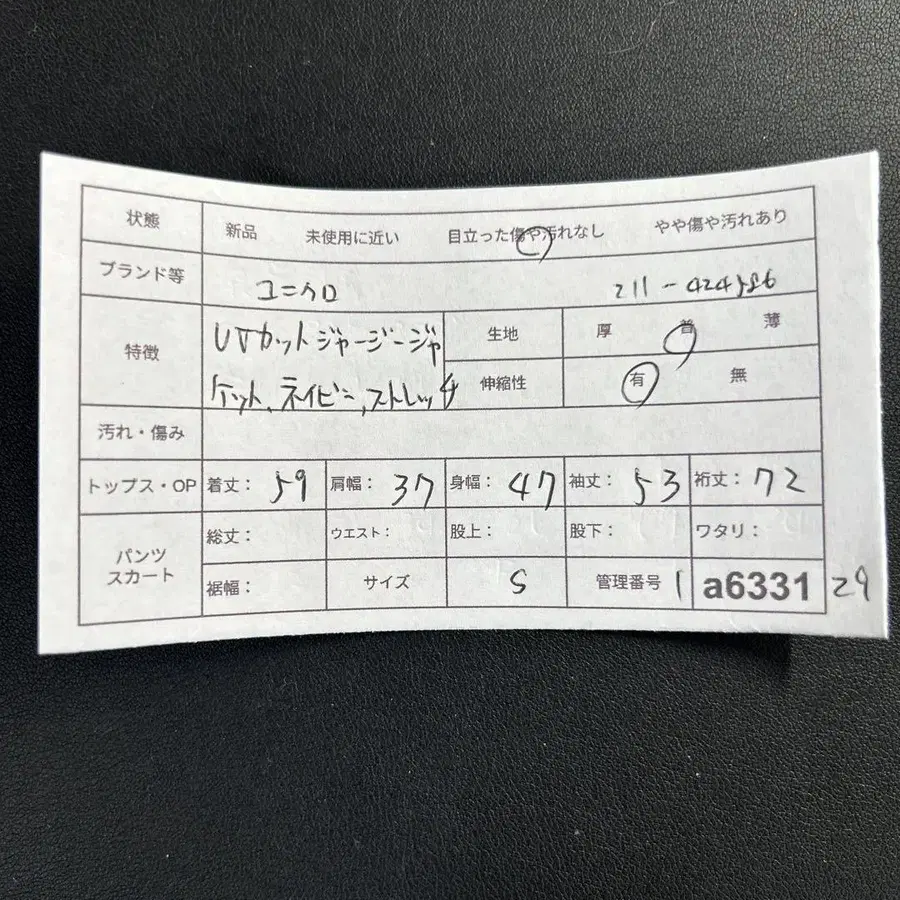 状態 新品 未使用に近い 目立った傷や汚れなし やや傷や汚れあり
ブランド等 ユニクロ 211-424586
特徴 UVカットジャージージャ
ケット、ネイビー、ストレッチ
生地 厚 普 薄
伸縮性 有 無
汚れ・傷み
トップス・OP 着丈: 59 肩幅: 37 身幅: 47 袖丈: 53 裄丈: 72
パンツ
スカート
総丈: ウエスト: 股上: 股下: ワタリ:
裾幅: サイズ S 管理番号 1 a6331 29